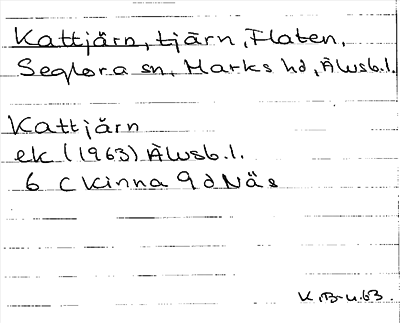 Kattjärn, tjärn, Flaten,
Seglora sn, Marks hd, Älvsb.l.
Kattjärn
ek (1963) Älvsb.l.
6 C Kinna 9 d Näs
K.B-u.63.